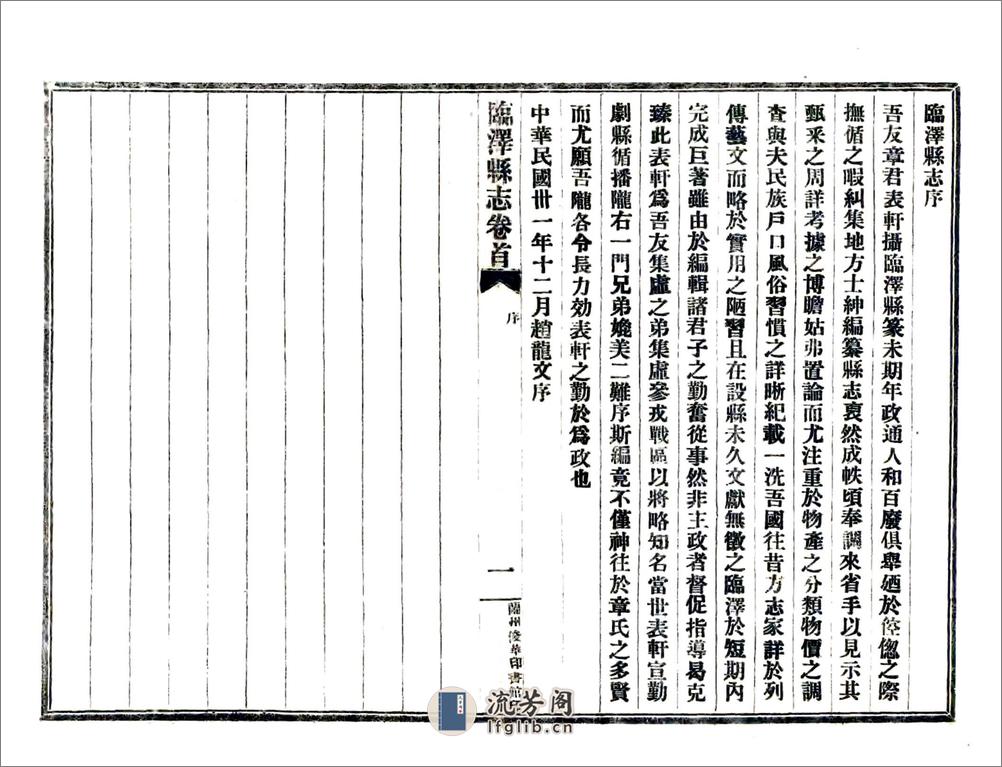 臨澤縣志序
吾友章君表軒攝臨澤縣篆未期年政通人和百廢俱舉廼於倥偬之際
撫循之暇糾集地方士紳編纂縣志裒然成帙頃奉調來省手以見示其
甄采之周詳考據之博瞻姑弗置論而尤注重於物產之分類物價之調
查與夫民族戶口風俗習慣之詳晰紀載一洗吾國往昔方志家詳於列
傳藝文而略於實用之陋習且在設縣未久文獻無徵之臨澤於短期內
完成巨著雖由於編輯諸君子之勤奮從事然非主政者督促指導曷克
臻此表軒爲吾友集虛之弟集虛參戎戰區以將略知名當世表軒宣勤
劇縣循播隴右一門兄弟媲美二難序斯編竟不僅神往於章氏之多賢
而尤願吾隴各令長力効表軒之勤於爲政也
中華民國卅一年十二月趙龍文序
臨澤縣志卷首
序
一
蘭州俊華印書館
流芳阁
lfglib.cn